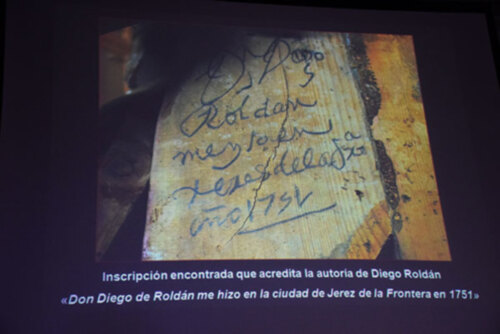 Roldan
me yzo en
xerez dela fra
año 1751
Inscripción encontrada que acredita la autoría de Diego Roldán
«Don Diego de Roldán me hizo en la ciudad de Jerez de la Frontera en 1751»